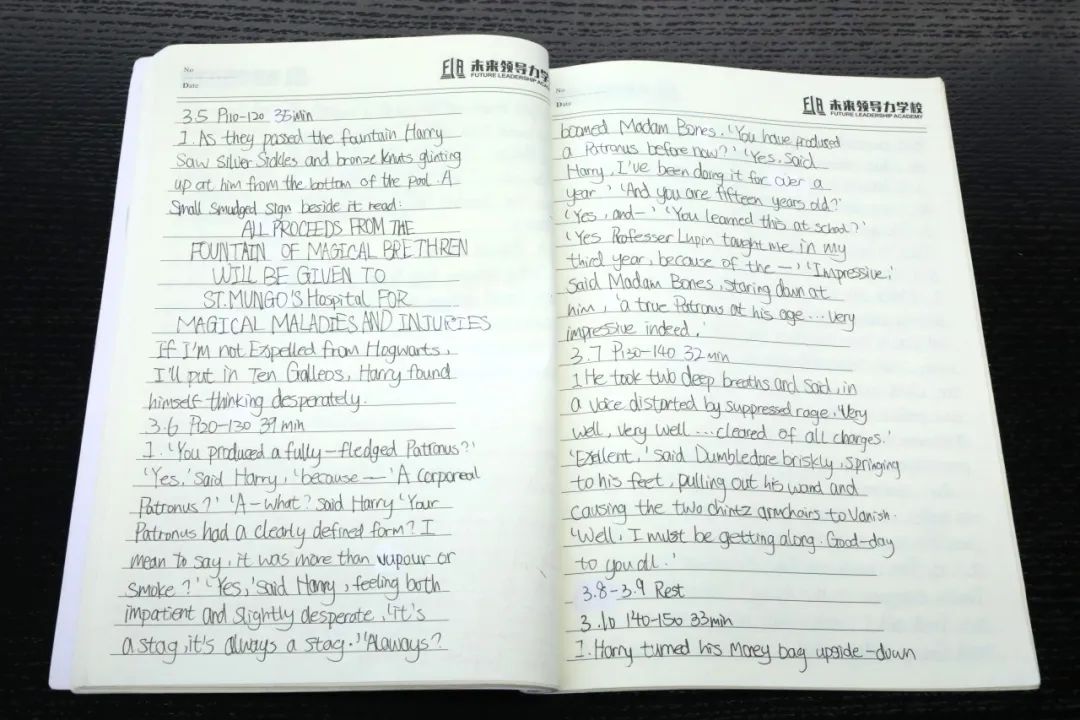 No
Date
ELA 未来领导力学
FUTURE LEADERSHIP ACA
3.5 P110-120 35min
1. As they passed the fountain Harry
Saw Silver Sickles and bronze Knuts glinting
up at him from the bottom of the pool. A
Small smudged sign beside it read:
ALL PROCEEDS FROM THE
FOUNTAIN OF MAGICAL BRETHREN
WILL BE GIVEN TO
ST.MUNGO'S Hospital FOR
MAGICAL MALADIES AND INJURIES
If I'm not Expelled from Hogwarts,
I'll put in Ten Galleos, Harry found
himself thinking desperately.
3.6 P120-130 39min
1. 'You produced a fully-fledged Patronus?'
'Yes,' said Harry, 'because — 'A corporeal
Patronus?' 'A-What? said Harry 'Your
Patronus had a clearly defined form? I
mean to say, it was more than vapour or
smoke?' 'Yes,' said Harry, feeling both
impatient and slightly desperate, 'it's
a stag, it's always a stag.' 'Always?
No
Date
ELA 未来领导力学校
FUTURE LEADERSHIP ACADEMY
boomed Madam Bones. 'You have produsd
a Patronus before now?' 'Yes, said
Harry, I've been doing it for over a
year' 'And you are fifteen years old?'
'Yes, and-' 'You learned this at school?'
'Yes Professer Lupin taught me in my
third year, because of the —' 'Impressive,'
said Madam Bones, staring down at
him, 'a true Patronus at his age...very
impressive indeed.'
3.7 P130-140 32min
1 He took two deep breaths and said, in
a voice distorted by suppressed rage, 'Very
well, very well ...cleared of all charges.'
'Exellent,' said Dumbledore briskly, springing
to his feet, pulling out his wand and
causing the two chintz armchairs to Vanish.
'Well, I must be getting along. Good-day
to you all.'
3.8-3.9 Rest
3.10 140-150 33min
1. Harry turned his money bag upside-down